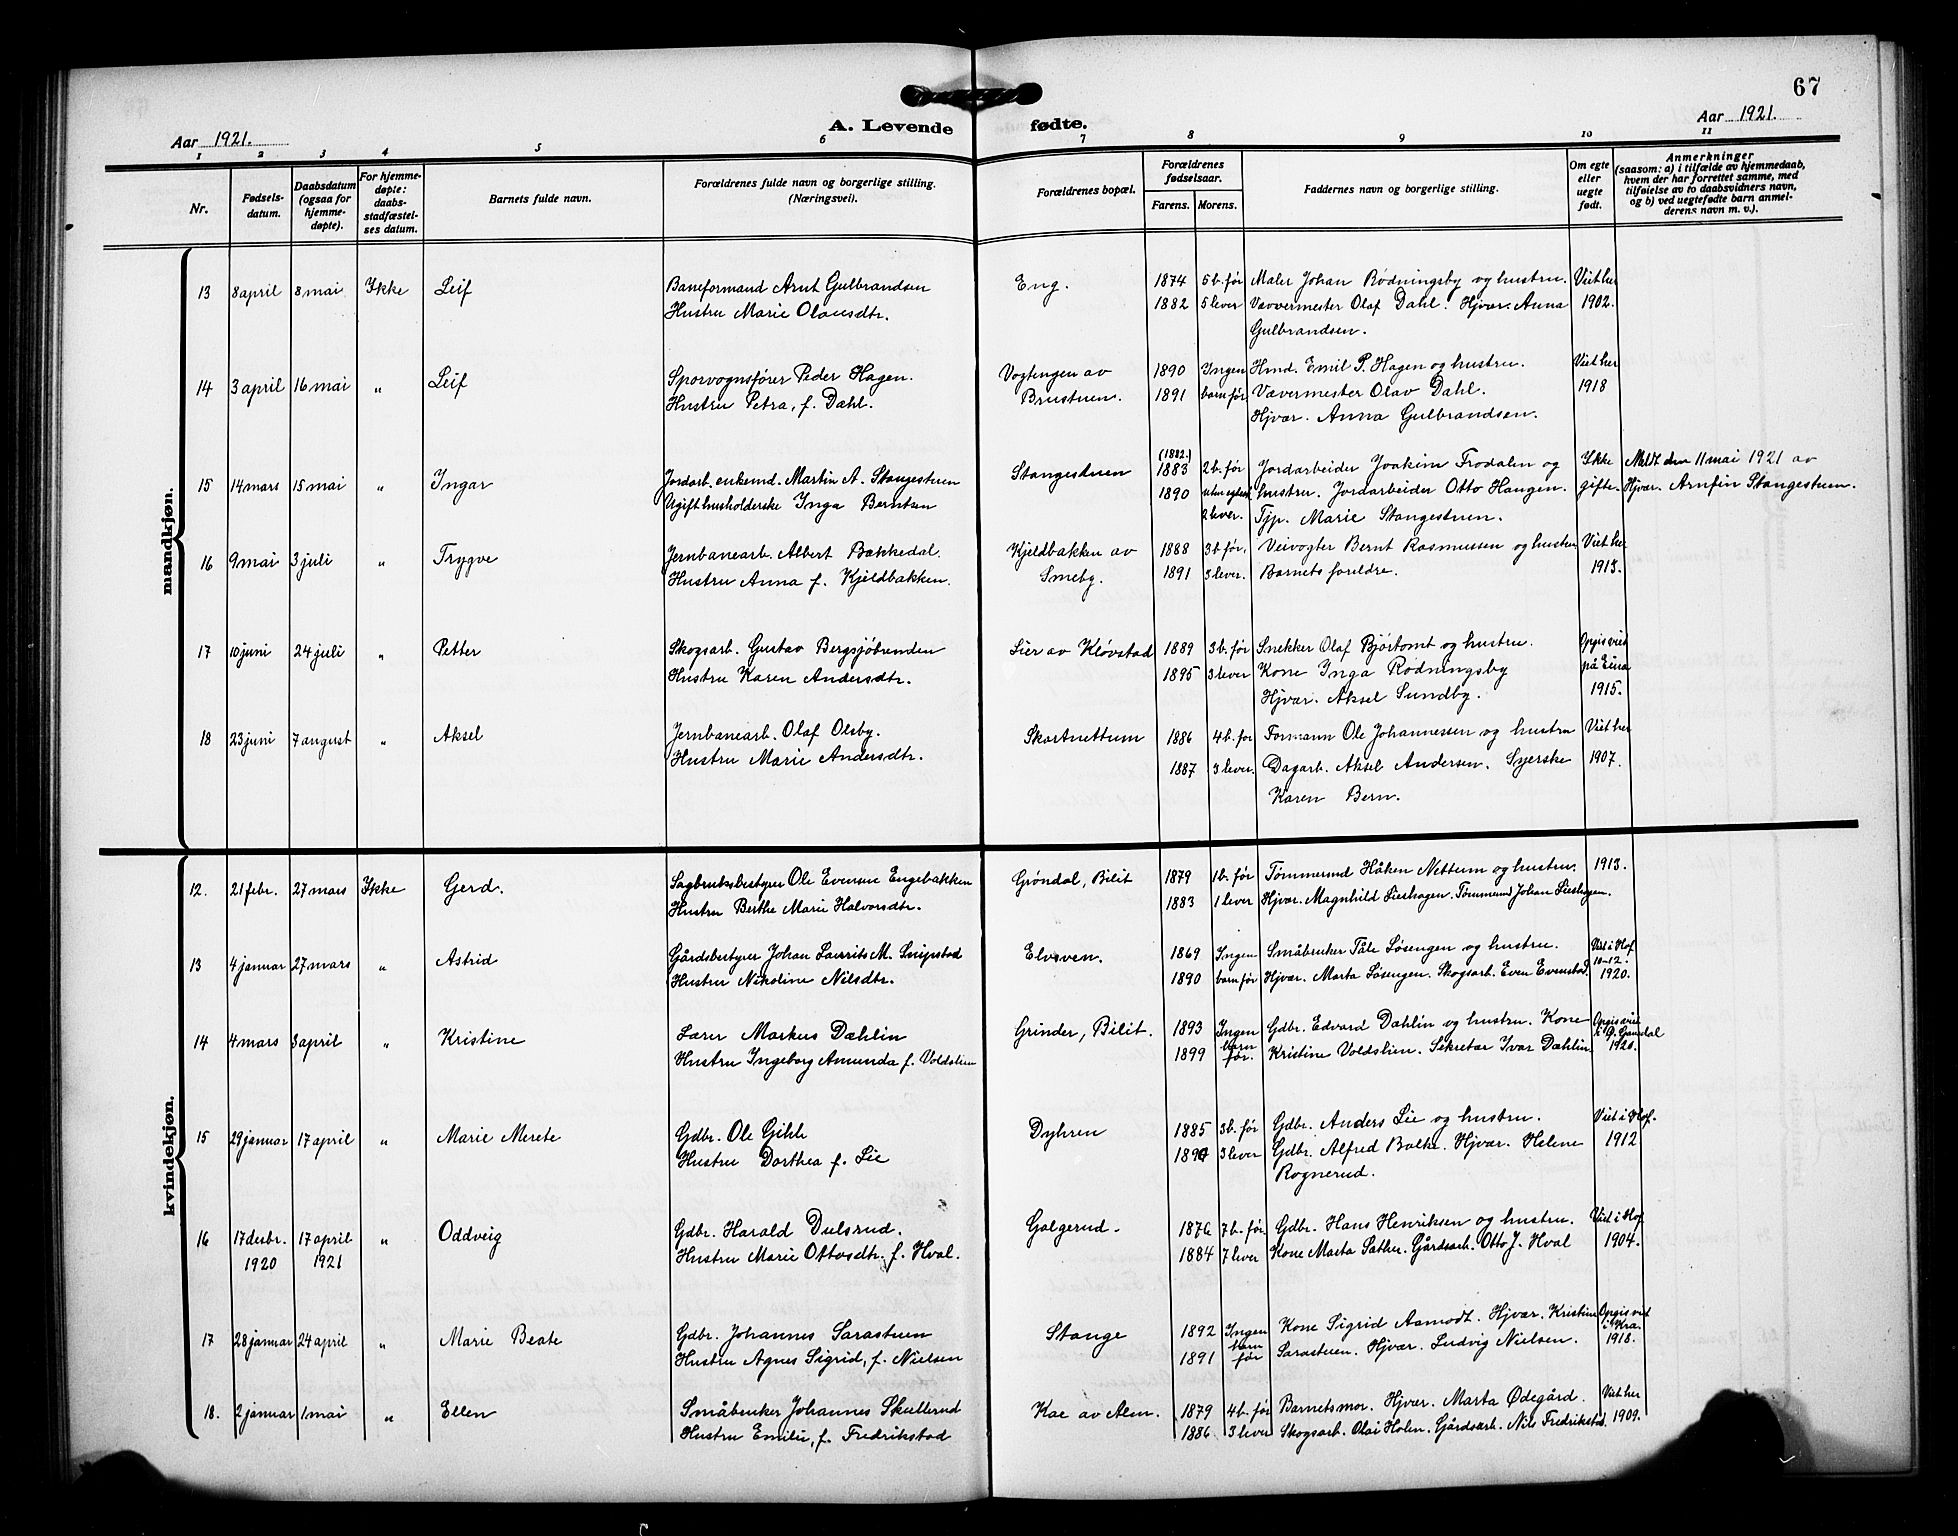 67
Aar 1921.
A. Levende fødte.
Aar 1921.
1 2 3 4 5 6 7 8 9 10 11
Nr.
Fødsels-
datum.
Daabsdatum
(ogsaa for
hjemme-
døpte).
For hjemme-
døpte:
daabs-
stadfæstel-
ses datum.
Barnets fulde navn.
Forældrenes fulde navn og borgerlige stilling.
(Næringsvei).
Forældrenes bopæl.
Forældrenes
fødselsaar.
Farens. Morens.
Faddernes navn og borgerlige stilling.
Om egte
eller
uegte
født.
Anmerkninger
(saasom: a) i tilfælde av hjemmedaab,
hvem der har forrettet samme, med
tilføielse av to daabsvidners navn,
og b) ved uegtefødte barn anmel-
derens navn m. v.).
mandkjøn.
13 8 april 8 mai Ikke Leif Baneformand Arnt Gulbrandsen Eng. 1874 5 b. før Maler Johan Rødningsby og hustru. Viet her
Hustru Marie Olausdtr. 1882 5 lever Vævermester Olaf Dahl. Hjvær. Anna 1902.
Gulbrandsen.
14 3 april 16 mai " Leif Sporvognsfører Peder Hagen. Vogtengen av 1890 Ingen Hmd. Emil P. Hagen og hustru. Viet her
Hustru Petra, f. Dahl. Brustuen. 1891 barn før Vævermester Olav Dahl. 1918
Hjvær. Anna Gulbrandsen.
(1882.)
15 14 mars 15 mai " Ingar Jordarb. enkemd. Martin A. Stangestuen Stangestuen 1883 2 b. før Jordarbeider Joakim Frodalen og Ikke Meldt den 11 mai 1921 av
Ugift husholderske Inga Berntsen 1890 utenegtesk. hustru. Jordarbeider Otto Haugen. gifte. Hjvær. Arnfin Stangestuen.
2 lever. Tjp. Marie Stangestuen.
16 9 mai 3 juli " Trygve Jernbanearb. Albert Bakkedal. Kjeldbakken av 1888 3 b. før. Veivogter Bernt Rasmussen og hustru Viet her
Hustru Anna f. Kjeldbakken. Smeby. 1891 3 lever. Barnets foreldre. 1913.
17 10 juni 24 juli " Petter Skogsarb. Gustav Bergsjøbraaden Lier av Kløvstad 1889 3 b. før Snekker Olaf Bjørtomt og hustru. Opgis viet
Hustru Karen Andersdtr. 1895 3 lever Kone Inga Rødningsby på Eina
Hjvær. Aksel Sundby. 1915.
18 23 juni 7 august " Aksel Jernbanearb. Olaf Olsby. Skartnettum 1886 4 b. før Formann Ole Johannessen og hustru Viet her
Hustru Marie Andersdtr. 1887 3 lever. Dagarb. Aksel Andersen. Syerske 1907.
Karen Bern.
kvindekjøn.
12. 21 febr. 27 mars Ikke Gerd. Sagbruksbestyrer Ole Evensen Engebakken Grøndal, Bilit 1879 1 b. før Tømmermd Håken Nettum og hustru. 1913.
Hustru Berthe Marie Halvorsdtr. 1883 1 lever Hjvær. Magnhild Lieshagen. Tømmermd Johan Lieshagen.
13 4 januar 27 mars " Astrid Gårdsbestyrer Johan Laurits M. Snipstad Elvsven. 1869 Ingen Småbruker Tåle Løsengen og hustru. Viet i Hof
Hustru Nikoline Nilsdtr. 1890 barn før Hjvær. Marta Løsengen. Skogsarb. Even Evenstad. 10-12. 1920.
14 4 mars 3 april " Kristine Lærer Markus Dæhlin Grinder, Bilit. 1893 Ingen Gdbr. Edvard Dæhlin og hustru. Kone Opgis viet
Hustru Ingeborg Amunda f. Voldslien 1899 barn før. Kristine Voldslien. Sekretær Ivar Dæhlin i Ø. Gausdal 1920.
15 29 januar 17 april " Marie Merete Gdbr. Ole Gihle Dyhren 1885 3 b. før Gdbr. Anders Lie og hustru. Viet i Hof.
Hustru Dorthea f. Lie 1890 3 lever Gdbr. Alfred Balke. Hjvær. Helene 1912
Rognerud.
16 17 desbr. 17 april " Oddveig Gdbr. Harald Dulsrud. Galgerud. 1876 7 b. før Gdbr. Hans Henriksen og hustru. Viet i Hof
1920 1921 Hustru Marie Ottosdtr. f. Hval. 1884 7 lever Kone Marta Sæther. Gårdsarb. Otto J. Hval 1904.
17 28 januar 24 april " Marie Beate Gdbr. Johannes Sarastuen Stange 1892 Ingen Kone Sigrid Aamodt. Hjvær. Kristine Opgis viet
Hustru Agnes Sigrid, f. Nielsen 1891 barn før Sarastuen. Hjvær. Ludvig Nielsen. i Kra. 1918.
18. 2 januar 1 mai " Ellen Småbruker Johannes Skullerud Kae av Alm. 1879 4 b. før Barnets mor. Hjvær. Marta Ødegård. Viet her
Hustru Emilie, f. Fredrikstad 1886 3 lever Skogsarb. Olai Holen. Gårdsarb. Nils Fredrikstad. 1909.